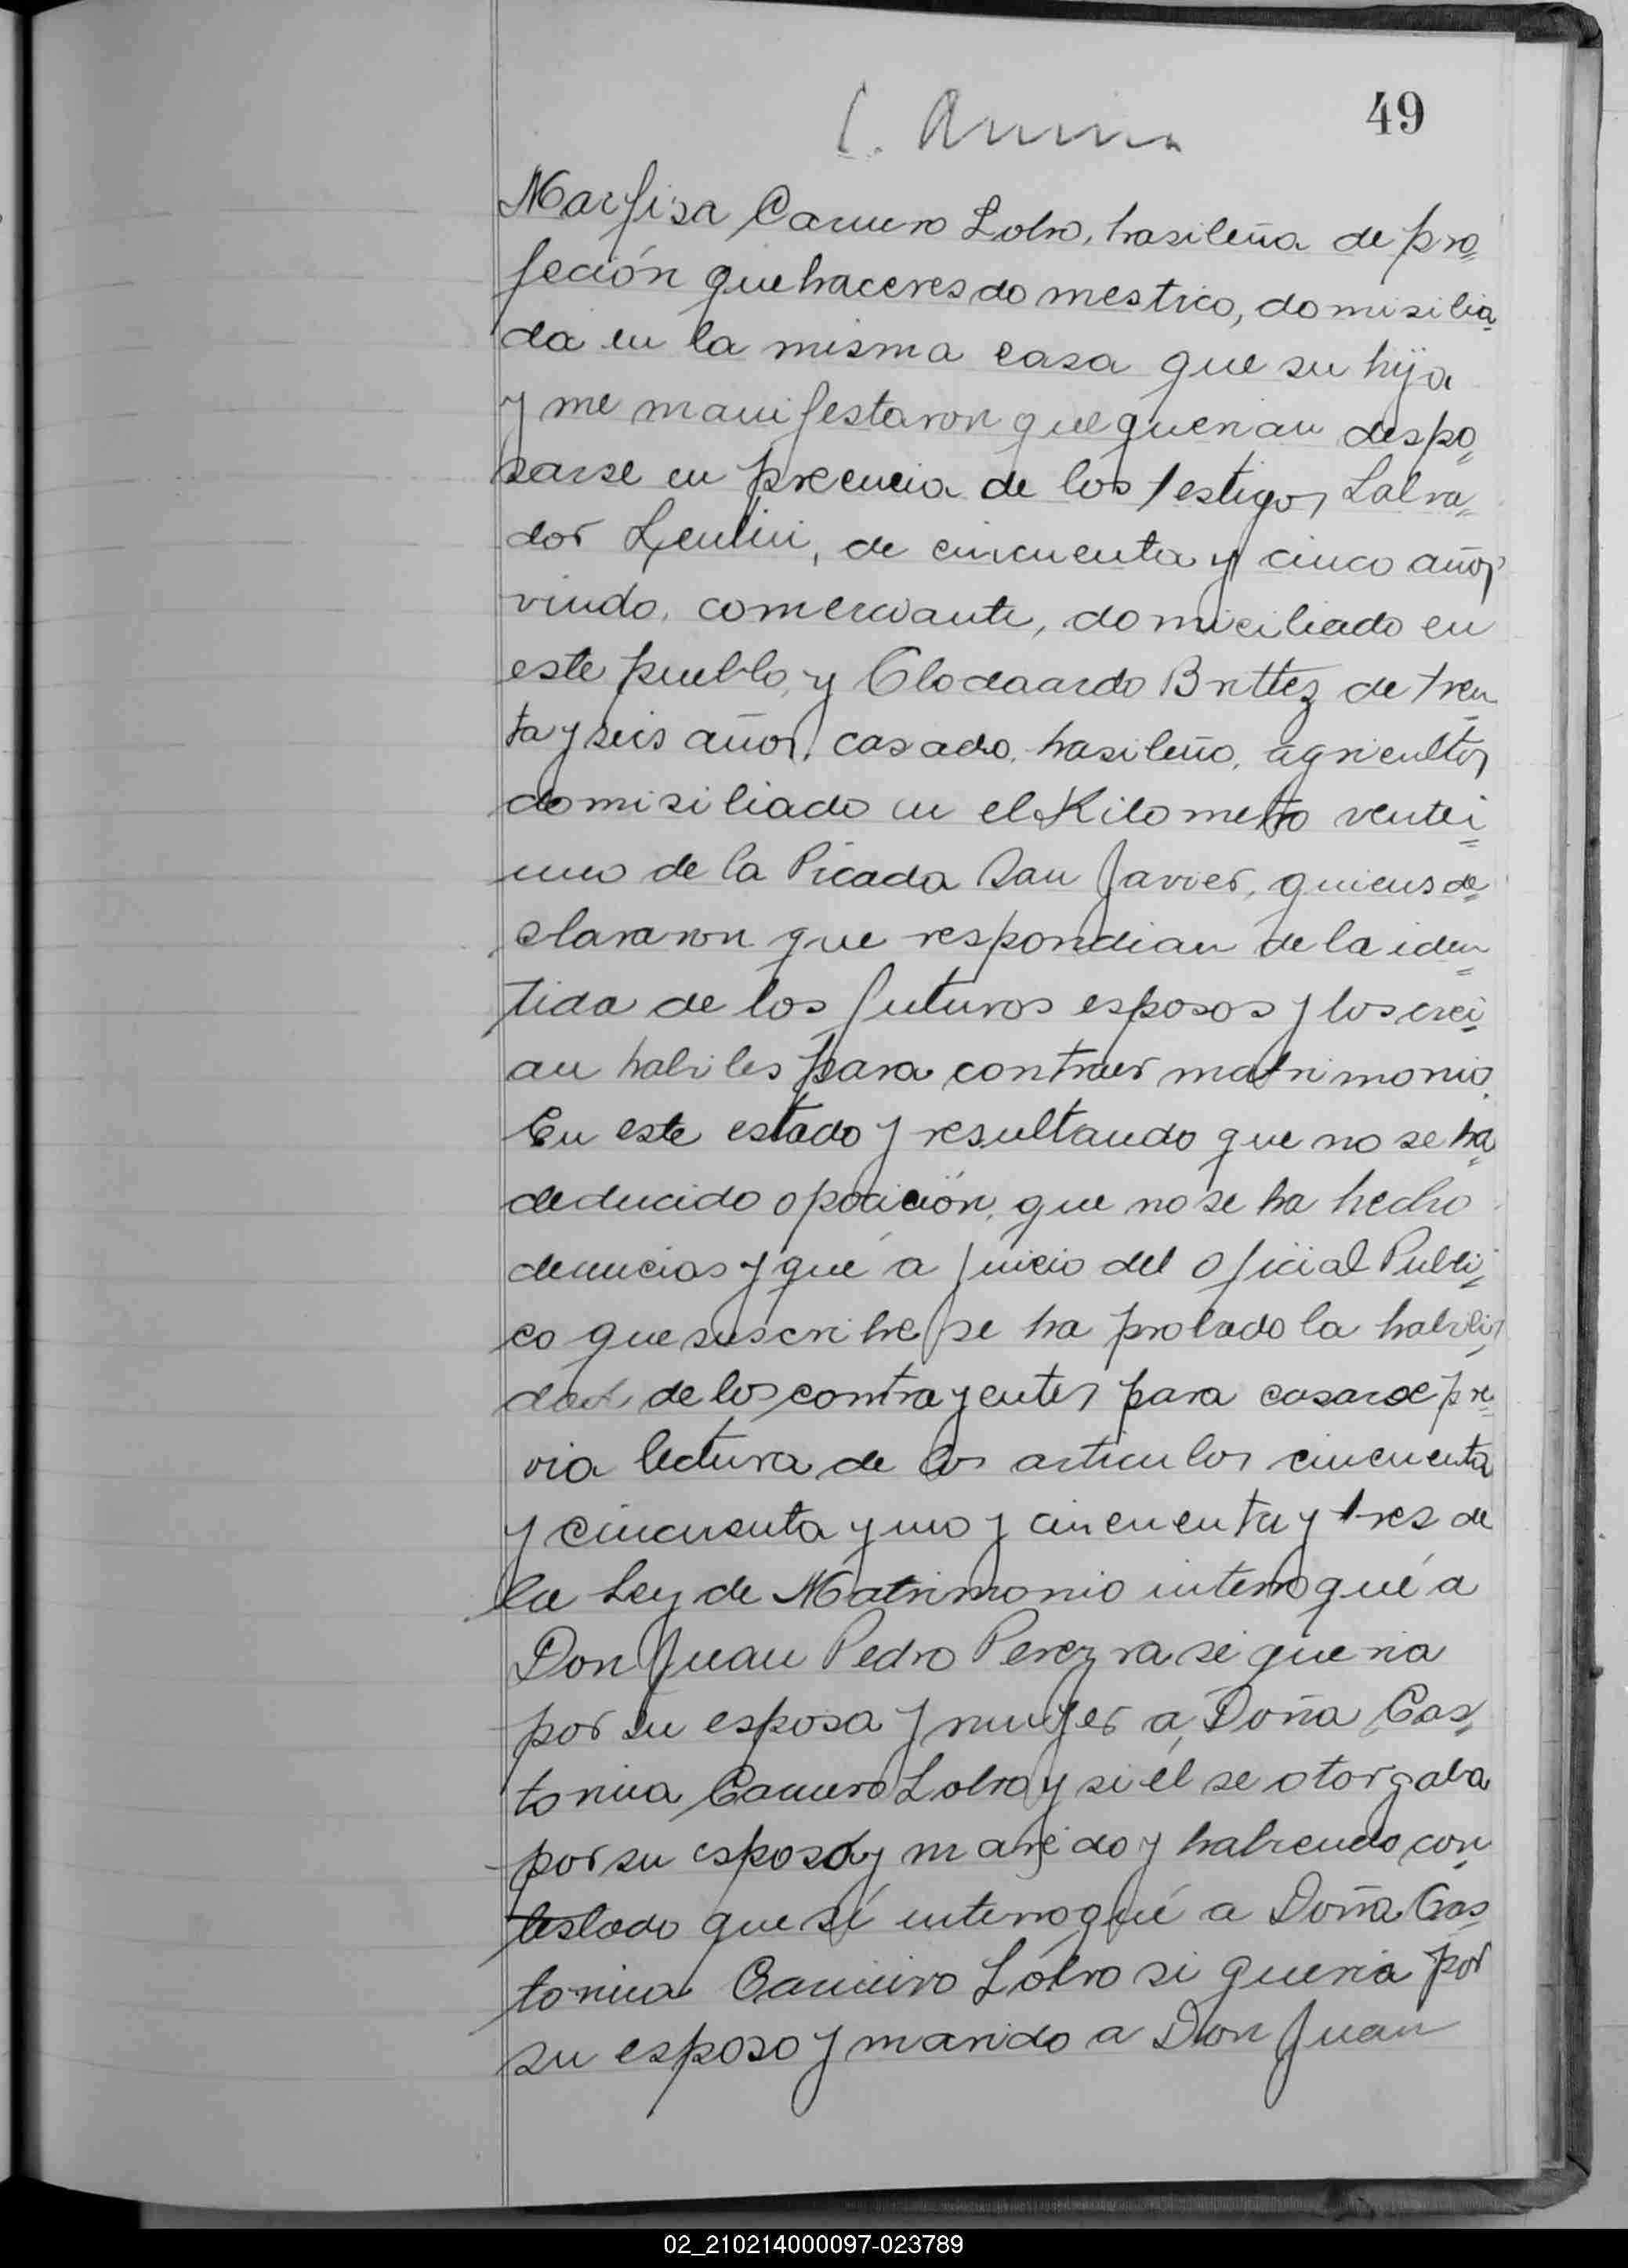 49
Marfisa Carnero Lobo, brasileña de pro=
feción quehaceres domestrico, domisilia=
da en la misma casa que su hija
y me manifestaron que querian despo=
sarse en precencia de los testigos Salva=
dor Lentini, de cincuenta y cinco años
viudo, comerciante, domiciliado en
este pueblo, y Clodoardo Brittez de trein=
ta y seis años, casado, brasileño, agricultor
domisiliado en el Kilometro ventei=
uno de la Picada San Javier, quienes de=
clararon que respondian de la iden=
tida de los futuros esposos y los crei=
an habiles para contraer matrimonio.
En este estado y resultando que no se ha=
deducido opocición, que no se ha hecho
denuncias y qué a juicio del Oficial Publi=
co que suscribe se ha probado la habili=
dad de los contrayentes para casarse pre=
via lectura de los articulos cincuenta
y cincuenta y uno y cincuenta y tres de
la Ley de Matrimonio interrogué a
Don Juan Pedro Pereyra si queria
por su esposa y mujer a Doña Cas=
torina Carnero Lobo y si él se otorgaba
por su esposo y marido y habiendo con=
testado que sí interrogué a Doña Cas=
torina Carneiro Lobo si queria por
su esposo y marido a Don Juan
02_210214000097-023789